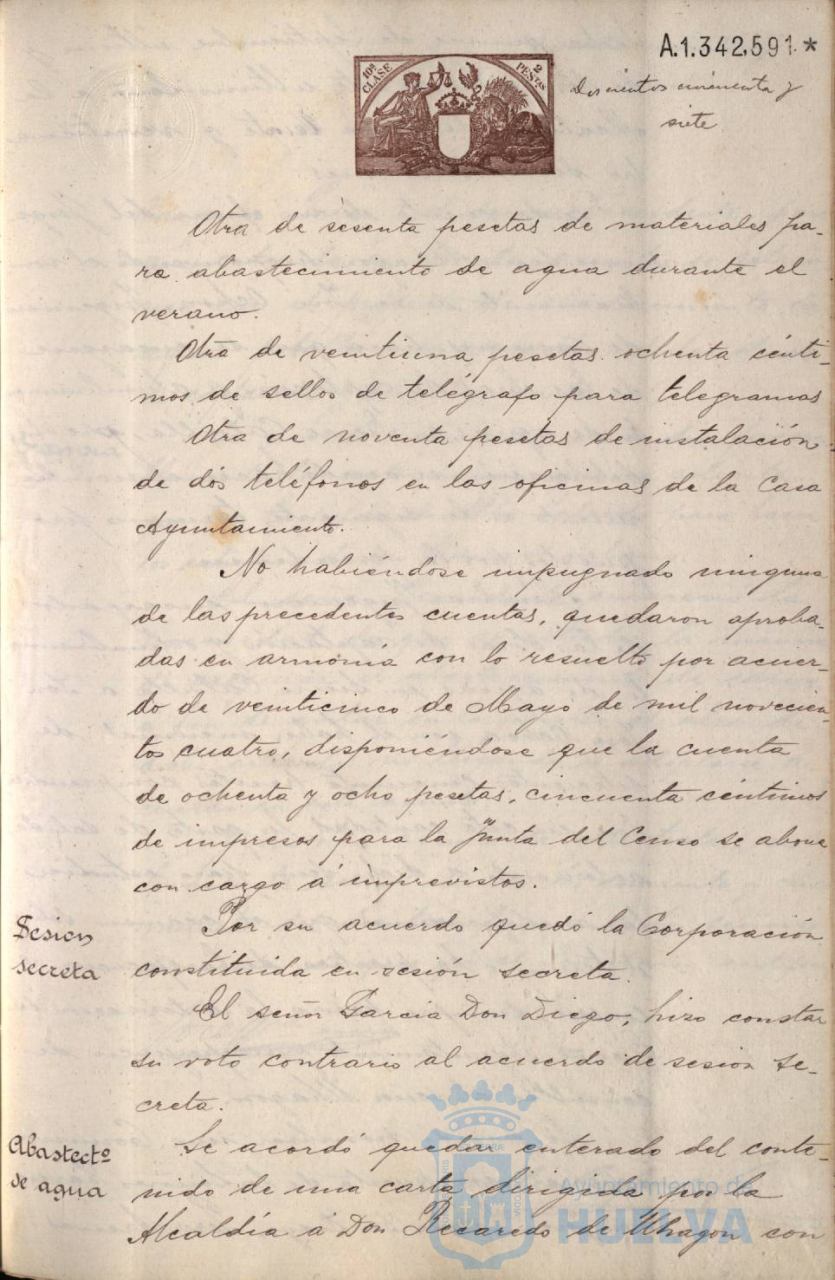 A.1.342,591 *
10ª CLASE
2 PESETAS
Doscientos cincuenta y
siete
Otra de sesenta pesetas de materiales pa-
ra abastecimiento de agua durante el
verano.
Otra de veintiuna pesetas ochenta cénti-
mos de sellos de telégrafo para telegramas
Otra de noventa pesetas de instalación
de dos teléfonos en las oficinas de la Casa
Ayuntamiento.
No habiéndose impugnado ninguna
de las precedentes cuentas, quedaron aproba-
das en armonía con lo resuelto por acuer-
do de veinticinco de Mayo de mil novecien-
tos cuatro, disponiéndose que la cuenta
de ochenta y ocho pesetas, cincuenta céntimos
de impresos para la Junta del Censo se abone
con cargo á imprevistos.
Sesion
secreta
Por su acuerdo quedó la Corporación
constituida en sesión secreta.
El señor Garcia Don Diego, hizo constar
su voto contrario al acuerdo de sesion se-
creta.
Abastectº
de agua
Se acordó quedar enterado del conte-
nido de una carta dirigida por la
Alcaldía á Don Recaredo de Uhagon con
Ayuntamiento de
HUELVA